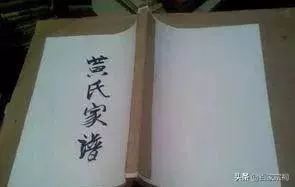 黄氏家谱
头条 @百家宗祠